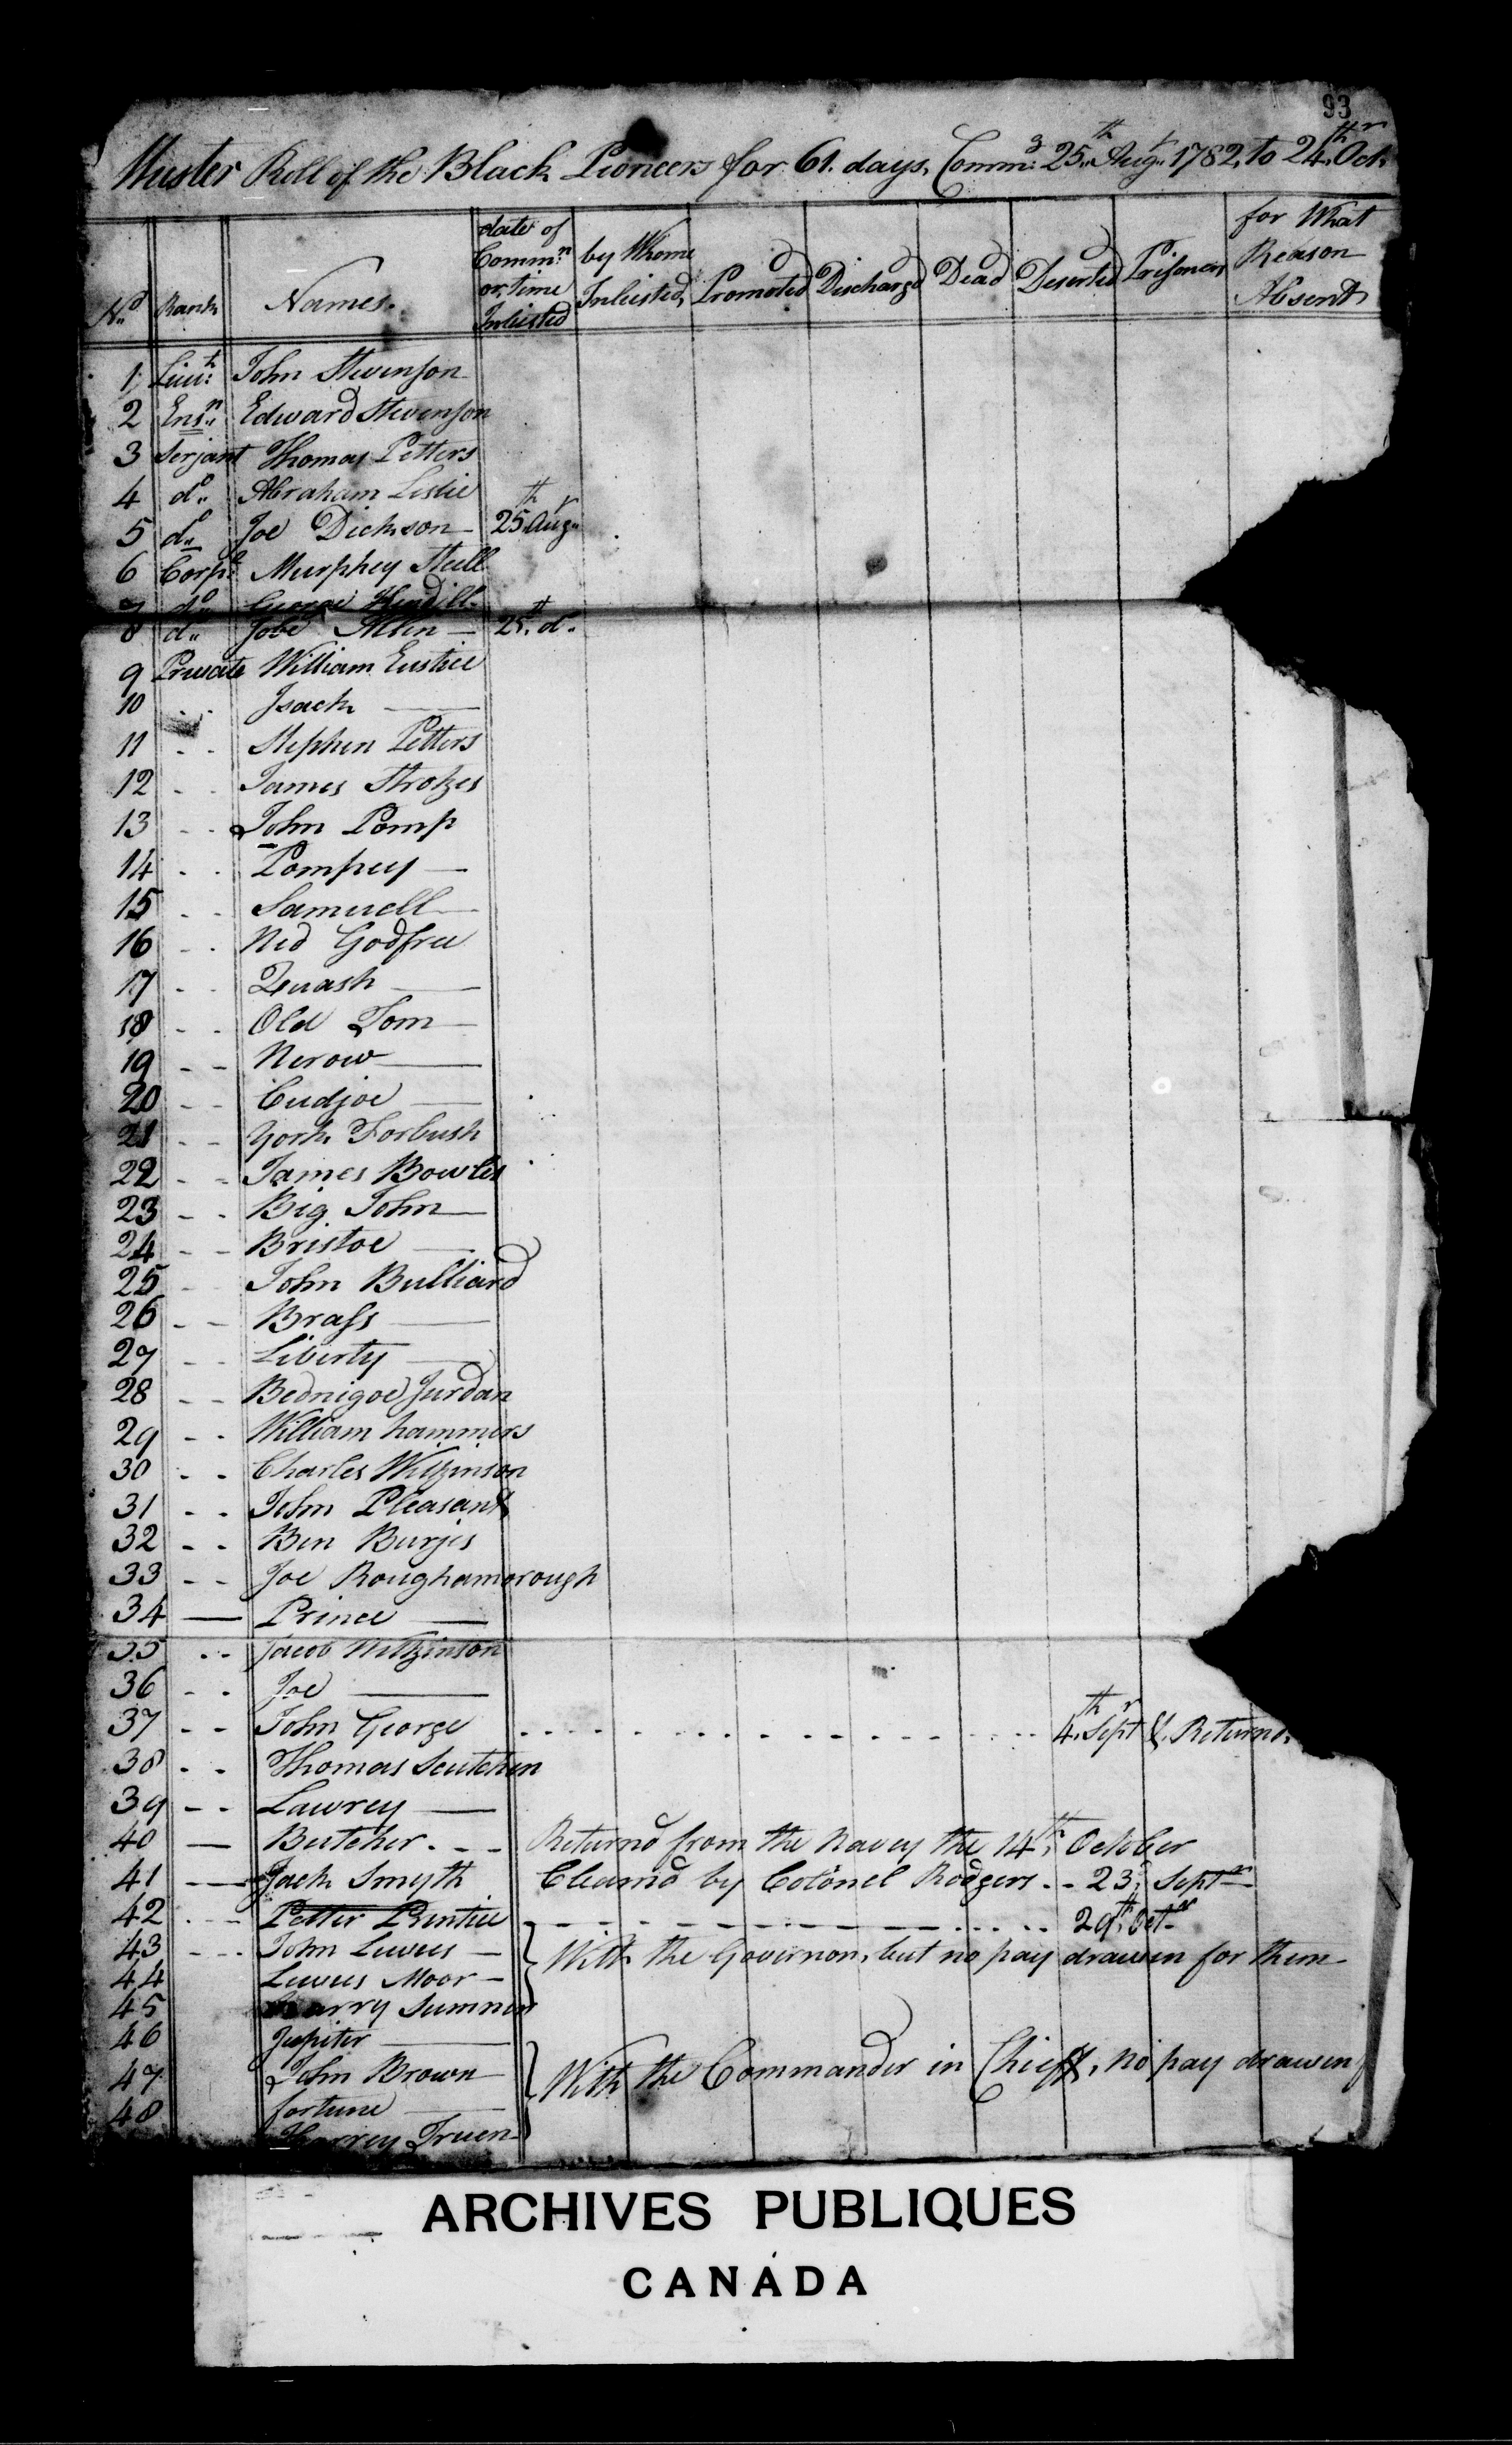 93
Muster Roll of the Black Pioneers for 61. days, Commg 25.th Augt. 1782, to 24.th Octr
No Rank Names. date of Commn or, time Inlisted by Whome Inlisted, Promoted Discharged Dead Deserted Prisoners for What Reason Absent
1 Lieut: John Stevenson
2 Ensn.. Edward Stevenson
3 Serjant Thomas Petters
4 do.. Abraham Leslie
5 do.. Joe Dickson 25th Augt..
6 Corpl. Murphey Steill
7 do.. George
8 do.. Jobe Allen 25.th do.
9 Private William Eustice
10 - - Isack
11 - - Stephen Petters
12 - - James Strotzes
13 - - John Pomp
14 - - Pompey
15 - - Samuell
16 - - Ned Godfree
17 - - Quash
18 - - Old Tom
19 - - Nerow
20 - - Cudjoe
21 - - York Forbush
22 - - James Bowles
23 - - Big John
24 - - Bristoe
25 - - John Bulliard
26 - - Brass
27 - - Liberty
28 - - Bednigoe Jurdan
29 - - William hammers
30 - - Charles Wilkinson
31 - - John Pleasant
32 - - Ben Burjes
33 - - Joe Roughamorough
34 — Prince
35 - - Jacob Wilkinson
36 - - Joe
37 - - John George 4.th Septr &. Returnd.
38 - - Thomas Scutchen
39 - - Lawrey
40 — Butcher. - - Returnd from the Navey the 14th. October
41 — Jack Smyth Cleamd by Colonel Rodgers. - 23d, Septr
42 - - - Petter Printice 29th, Octr
43 - - - John Lewees With the Governor, but no pay drawen for them
44 Lewees Moor
45 Harry Sumner
46 Jupiter
47 John Brown With the Commander in Chieff, no pay drawen
48 fortune
Harrey Truen
ARCHIVES PUBLIQUES
CANADA